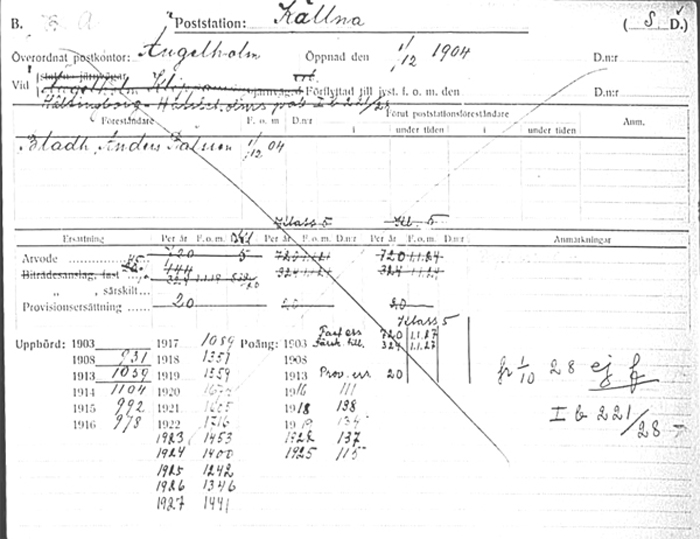 B. Poststation: Källna (S Ö D.)
Överordnat postkontor: Ängelholm Öppnad den 1/12 1904 D.n:r
Vid Ängelholm Klippans järnväg Förflyttad till jvst. f. o. m. den D.n:r
Hälsingborg-Hässleholms I b 221/28
Föreståndare F. o. m D.n:r Förut poststationsföreståndare Anm.
i under tiden i under tiden
Bladh, Anders Pålsson 1/12 04
Klass 5 Kl. 5
Ersättning Per år F. o. m. Per år F. o. m. D.n:r Per år F. o. m. D.n:r Anmärkningar
Arvode 720 5 720 1.1.21 720 1.1.24
Biträdesanslag, fast 444 324 1.1.21 324 1.1.24
324 1.1.19
„ , särskilt
Provisionsersättning 20 20 20
Klass 5
Uppbörd: 1903 1917 1089 Poäng: 1903 Fast ers 720 1.1.27
324 1.1.27
1908 931 1918 1351 1908
1913 1039 1919 1359 1913 Prov. ers 20
1914 1104 1920 1916 111
1915 992 1921 1918 138
1916 978 1922 1716 1919 134
1923 1453 1922 137
1924 1400 1925 115
1925 1242
1926 1346
1927 1441
fr 1/10 28 ej f
I b 221/28